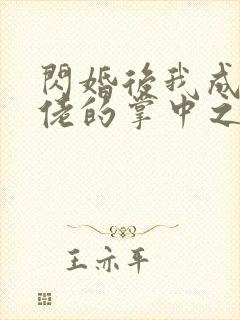 閃婚後我成
佬的掌中之
王亦平